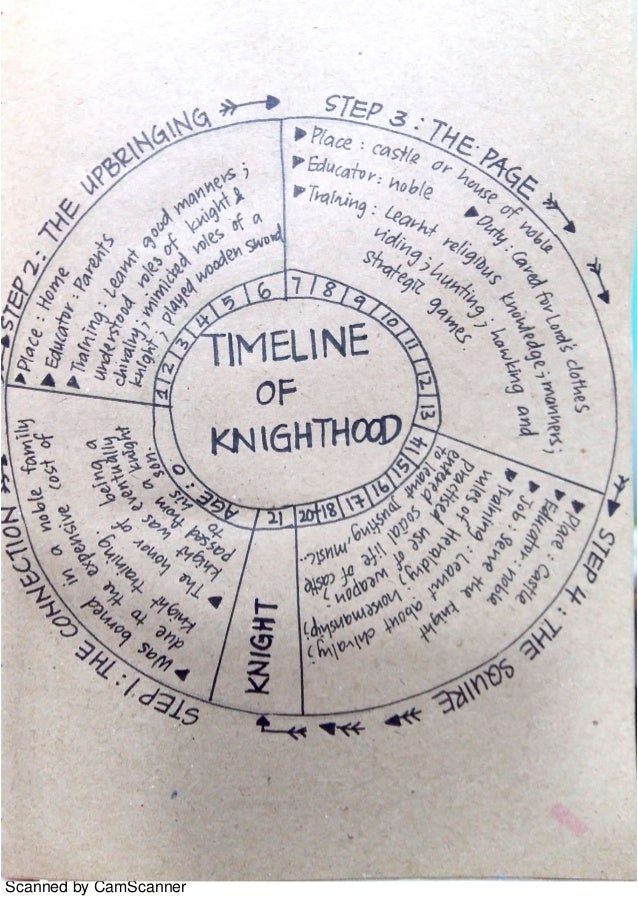 TIMELINE
OF
KNIGHTHOOD
AGE : 0
1 2 3 4 5 6 7 8 9 10 11 12 13 14 15 16 17 18 20 21
STEP 1 : THE CONNECTION
was borned in a noble family
due to the expensive cost of
knight training
The honor of being a
knight was eventually
passed from a knight
to his son.
STEP 2 : THE UPBRINGING
Place : Home
Educator : Parents
Training : Learnt good manners ;
understood roles of knight &
chivalry ; mimicked roles of a
knight ; played wooden sword
STEP 3 : THE PAGE
Place : castle or house of noble
Educator : noble
Duty : Cared for Lord's clothes
Training : Learnt religious knowledge ; manners ;
riding ; hunting ; hawking and
strategic games.
STEP 4 : THE SQUIRE
Place : Castle
Educator : noble
Job : Serve the knight
Training : Learnt about chivalry ;
rules of Heraldry ; horsemanship ;
practised use of weapon ;
entered social life of castle
to learn jousting, music...
KNIGHT
Scanned by CamScanner